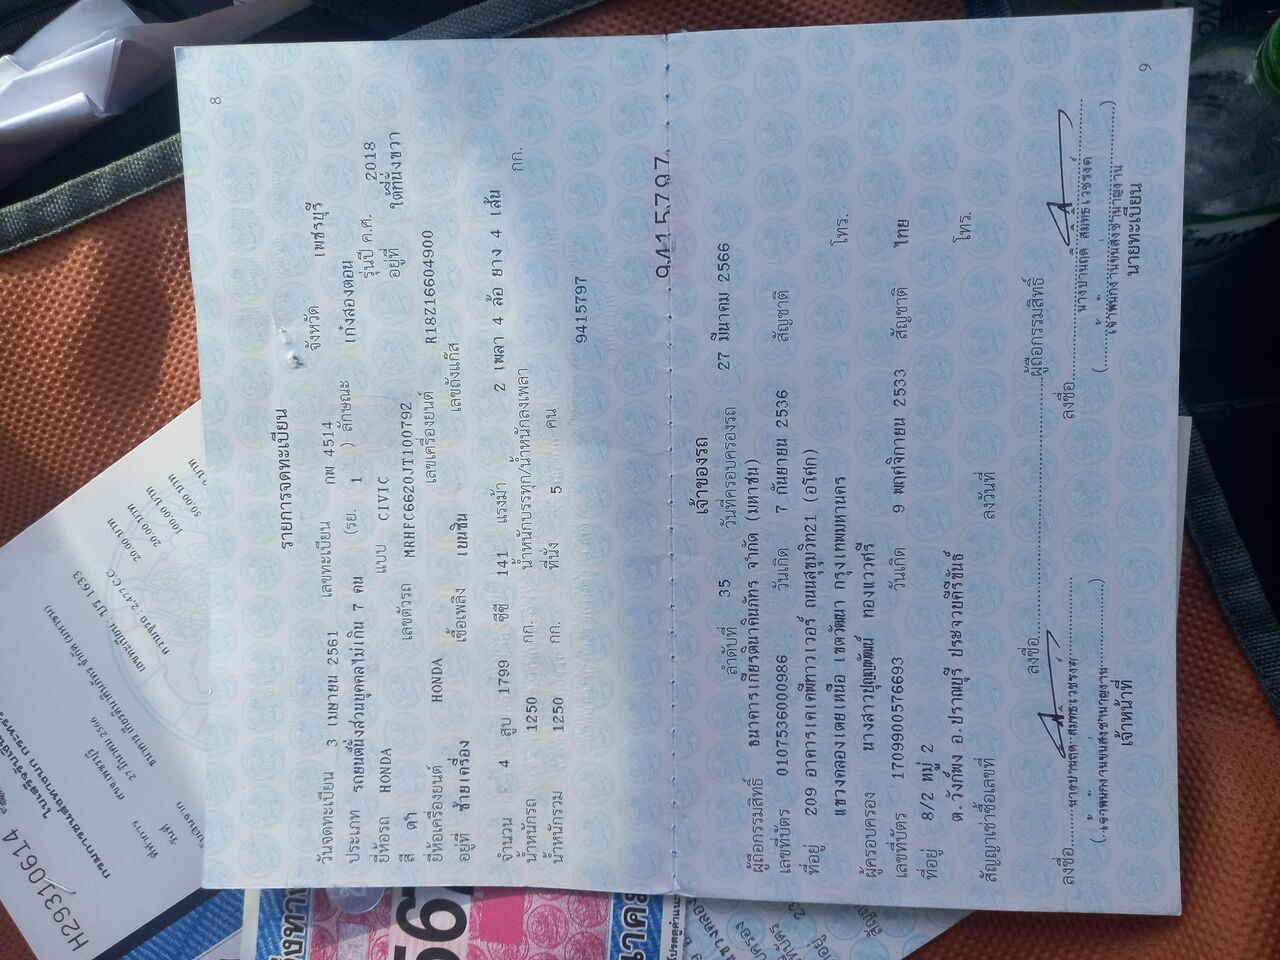 8
รายการจดทะเบียน
วันจดทะเบียน 3 เมษายน 2561 เลขทะเบียน กพ 4514 จังหวัด เพชรบุรี
ประเภท รถยนต์นั่งส่วนบุคคลไม่เกิน 7 คน (รย. 1 ) ลักษณะ เก๋งสองตอน
ยี่ห้อรถ HONDA แบบ CIVIC รุ่นปี ค.ศ. 2018
สี ดำ เลขตัวรถ MRHFC6620JT100792 อยู่ที่ ใต้ที่นั่งขวา
ยี่ห้อเครื่องยนต์ HONDA เลขเครื่องยนต์ R18Z16604900
อยู่ที่ ซ้ายเครื่อง เชื้อเพลิง เบนซิน เลขถังแก๊ส
จำนวน 4 สูบ 1799 ซีซี 141 แรงม้า 2 เพลา 4 ล้อ ยาง 4 เส้น
น้ำหนักรถ 1250 กก. น้ำหนักบรรทุก/น้ำหนักลงเพลา กก.
น้ำหนักรวม 1250 กก. ที่นั่ง 5 คน
9415797
9415797
เจ้าของรถ
ลำดับที่ 35 วันที่ครอบครองรถ 27 มีนาคม 2566
ผู้ถือกรรมสิทธิ์ ธนาคารเกียรตินาคินภัทร จำกัด (มหาชน)
เลขที่บัตร 0107536000986 วันเกิด 7 กันยายน 2536 สัญชาติ
ที่อยู่ 209 อาคารเคเคพีทาวเวอร์ ถนนสุขุมวิท21 (อโศก)
แขวงคลองเตยเหนือ เขตวัฒนา กรุงเทพมหานคร โทร.
ผู้ครอบครอง นางสาวปุญญพัฒน์ ทองแววศรี
เลขที่บัตร 1709900576693 วันเกิด 9 พฤศจิกายน 2533 สัญชาติ ไทย
ที่อยู่ 8/2 หมู่ 2
ต.วังก์พง อ.ปราณบุรี ประจวบคีรีขันธ์ โทร.
สัญญาเช่าซื้อเลขที่ ลงวันที่
ลงชื่อ ผู้ถือกรรมสิทธิ์
ลงชื่อ ลงชื่อ
เจ้าหน้าที่ นายทะเบียน
9
H29310614
กรมการขนส่งทางบก
27 มีนาคม 2566
เลขทะเบียน : บร 1633
ความจุรถ : 2,477 CC.
20.00 บาท
20.00 บาท
100.00 บาท
50.00 บาท